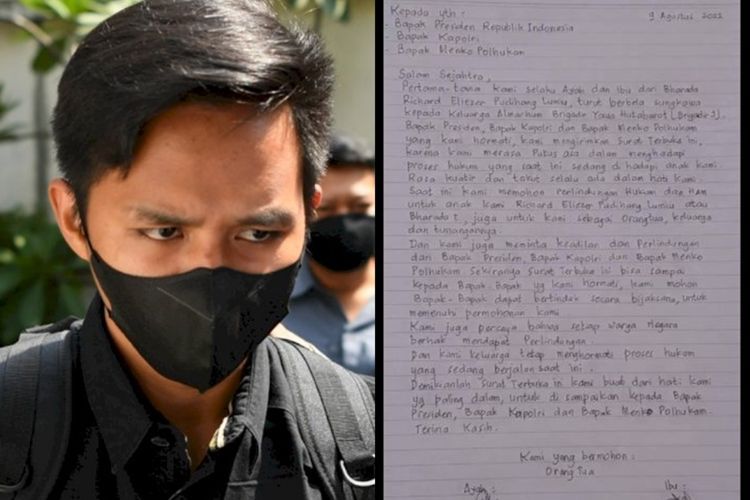 Kepada yth :
9 Agustus 2022
- Bapak Presiden Republik Indonesia
- Bapak Kapolri
- Bapak Menko Polhukam
Salam Sejahtra,
Pertama-tama kami selaku Ayah dan Ibu dari Bharada
Richard Eliezer Pudihang Lumiu, turut berbela sungkawa
kepada keluarga Almarhum Brigadir Yosua Hutabarat (Brigadir J).
Bapak Presiden, Bapak Kapolri dan Bapak Menko Polhukam
yang kami hormati, kami mengirimkan Surat Terbuka ini,
karena kami merasa Putus asa dalam menghadapi
proses hukum yang saat ini sedang di hadapi anak kami.
Rasa kuatir dan takut selalu ada dalam hati kami.
Saat ini kami memohon perlindungan Hukum dan Ham
untuk anak kami Richard Eliezer Pudihang Lumiu atau
Bharada E, juga untuk kami sebagai Orangtua, keluarga
dan tunangannya.
Dan kami juga meminta keadilan dan Perlindungan
dari Bapak Presiden, Bapak Kapolri dan Bapak Menko
Polhukam sekiranya Surat Terbuka ini bisa sampai
kepada Bapak-Bapak yg kami hormati, kami mohon
Bapak-Bapak dapat bertindak secara bijaksana, untuk
memenuhi permohonan kami
Kami juga percaya bahwa setiap warga negara
berhak mendapat Perlindungan.
Dan kami keluarga tetap menghormati proses hukum
yang sedang berjalan saat ini.
Demikianlah Surat Terbuka ini kami buat dari hati kami
yg paling dalam, untuk di sampaikan kepada Bapak
Presiden, Bapak Kapolri dan Bapak Menko Polhukam.
Terima Kasih.
Kami yang bermohon :
Orang Tua
Ayah :
Ibu :